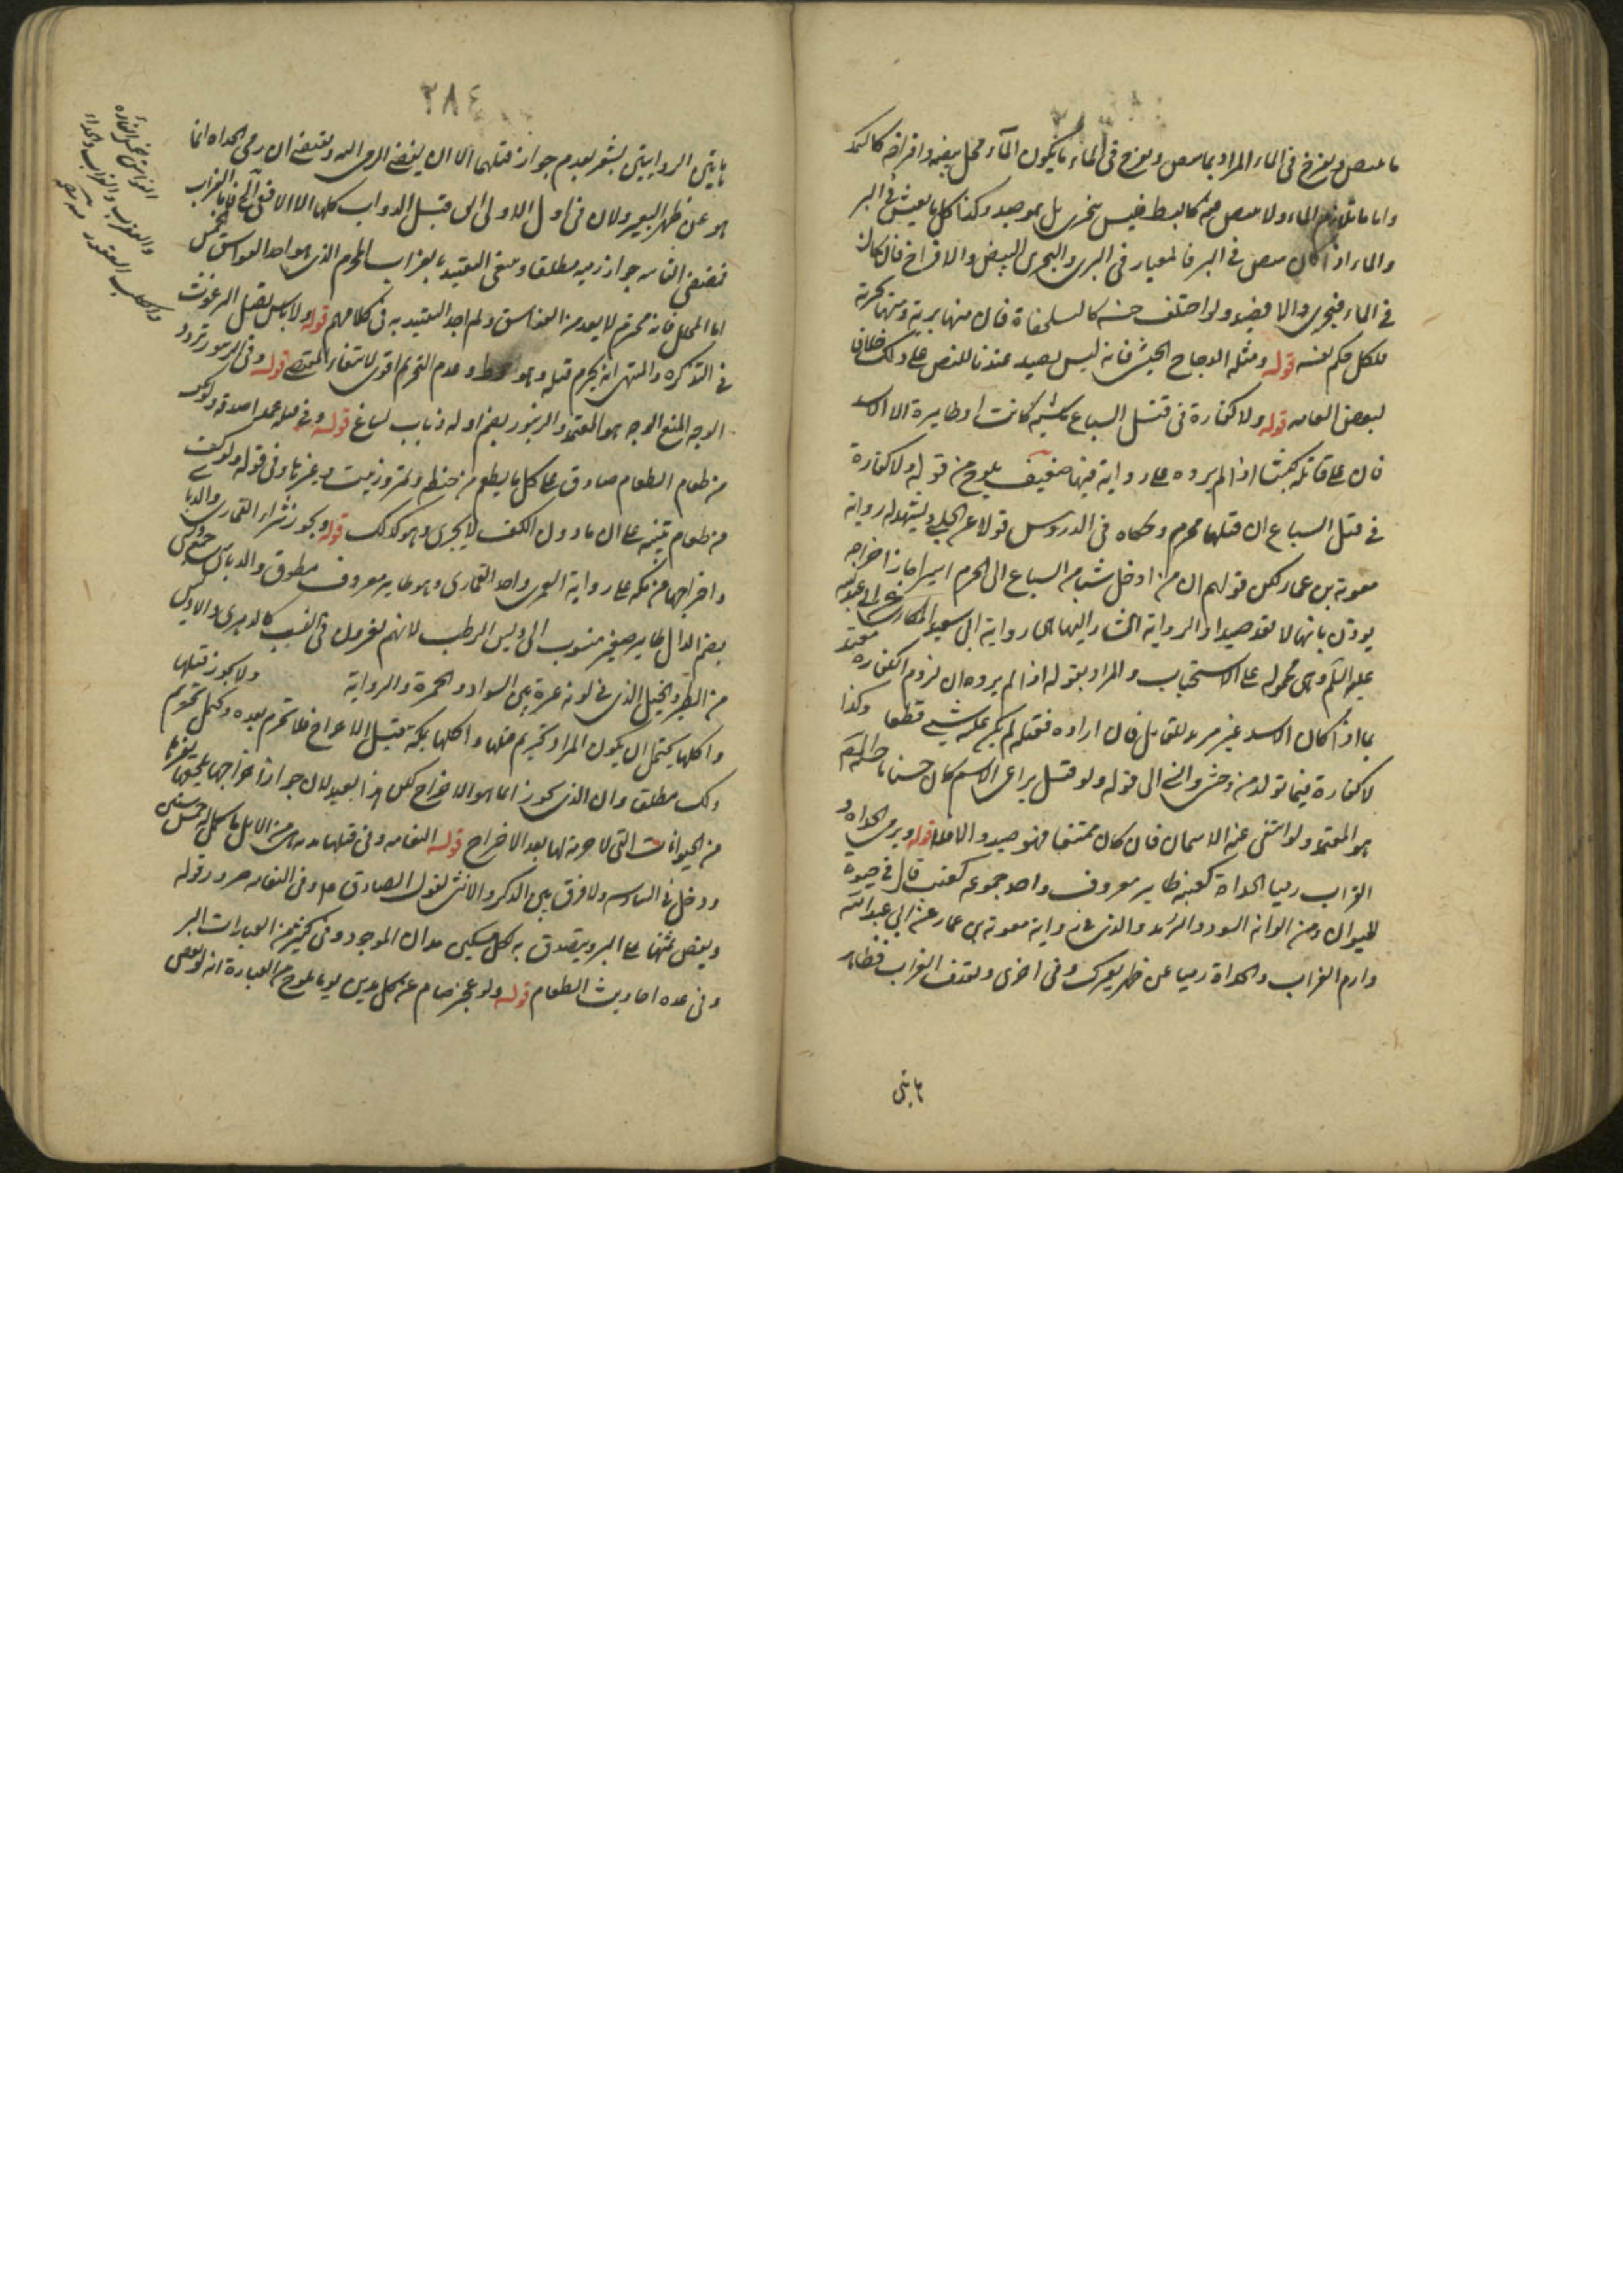 ما يبيض ويفرخ في الماء المراد بما يبيض ويفرخ في الماء ما يكون الماء محل بيضه وافراخه كالسمك
واما ما يلازم الماء ولا يبيض فيه كالبط فليس ببحري بل هو صيد وكذا كل ما يعيش في البر
والماء اذا كان يبيض في البر فالمعيار في البري والبحري البيض والافراخ فان كان
في الماء فبحري والا فبري ولو اختلف جنسه كالسلحفاة فان منها برية ومنها بحرية
فلكل حكم نفسه قوله ومثله الدجاج الحبشي فانه ليس بصيد عندنا للنص على ذلك خلافا
لبعض العامه قوله ولا كفارة في قتل السباع ماشية كانت او طايرة الا الاسد
فان على قاتله كبشا اذا لم يرده على رواية فيها ضعيف يلوح من قوله ولا كفارة
في قتل السباع ان قتلها محرم وحكاه في الدروس قولا عن الحلبي ويشهد له رواية
معوية بن عمار لكن قولهم ان من ادخل شيا من السباع الى الحرم اسيرا جاز اخراجه
يوذن بانها لا تعد صيدا والرواية المشار اليها هي رواية ابي سعيد المكاري عن ابي عبد الله
عليه السلم وهي محمولة على الاستحباب والمراد بقوله اذا لم يرده ان لزوم الكفارة معتمد
بما اذا كان الاسد غير مريد للقاتل فان اراده فقتله لم يكن عليه شيء قطعا وكذا
لا كفارة فيما تولد من وحشي وانسي الى قوله ولو قيل يراعى الاسم كان حسنا
هو المعتمد ولو انتفى عنه الاسمان فان كان ممتنعا فهو صيد والا فلا قوله ويرمي الحداة و
الغراب رميا الحداة كعنبة طاير معروف واحد جمعه كعنب قال في حيوة
الحيوان ومن الوانه السود والربد والذي في رواية معوية بن عمار عن ابي عبد الله
وارم الغراب والحداة رميا عن ظهر بعيرك وفي اخرى ويقذف الغراب فظاهر
هاتين
٢٨٤
هاتين الروايتين يشعر بعدم جواز قتلهما الا ان يفضي الرمي اليه ويقتضي ان رمي الحداه انما
هو عن ظهر البعير ولان في اول الاولى اتق قتل الدواب كلها الا الافعى
فمقتضى الثانية جواز رميه مطلقا وينبغي التقييد بالغراب المحرم الذي هو احد الفواسق الخمس
اما المحلل فانه محترم لا يعد من الفواسق ولم اجد التقييد به في كلامهم قوله ولا باس بقتل البرغوث
في التذكره والمنتهى انه يحرم قتله وهو احوط وعدم التحريم اقوى لانتفاء المقتضي قوله وفي الزنبور تردد
الوجه المنع الوجه هو المعتمد والزنبور بضم اوله ذباب لساغ قوله وفي قتله عمدا صدقة ولو بكف
من طعام الطعام صادق على كل ما يطعم من حنطة وتمر وزبيب وغيرها وفي قوله ولو بكف
من طعام تنبيه على ان ما دون الكف لا يجزي وهو كذلك قوله ويجوز شراء القماري والدباسي
واخراجها من مكه على رواية القمري واحد القماري وهو طاير معروف مطوق والدباسي جمع دبسي
بضم الدال طاير صغير منسوب الى دبس الرطب لانهم يغيرون في النسب كالدهري
من الطير والخيل الذي في لونه غبرة بين السواد والحمرة والرواية ولا يجوز قتلها
واكلها يحتمل ان يكون المراد تحريم قتلها واكلها بمكة قبل الاخراج فلا تحرم بعده ويحتمل تحريم
ذلك مطلقا وان الذي يجوز انما هو الاخراج لكن هذا بعيد لان جواز اخراجها يلحقها بغيرها
من الحيوانات التي لا حرمة لها بعد الاخراج قوله النعامه وفي قتلها بدنه هي من الابل ما كمل له خمس سنين
ودخل في السادسه ولا فرق بين الذكر والانثى لقول الصادق
ويفض ثمنها على البر ويتصدق به لكل مسكين مدان الموجود في كثير من العبارات البر
وفي عدة احاديث الطعام قوله ولو عجز صام عن كل مدين يوما يلوح من العبارة انه لو نقص
الفواسق خمس الفاره
والعقرب والغراب والحداه
والكلب العقور